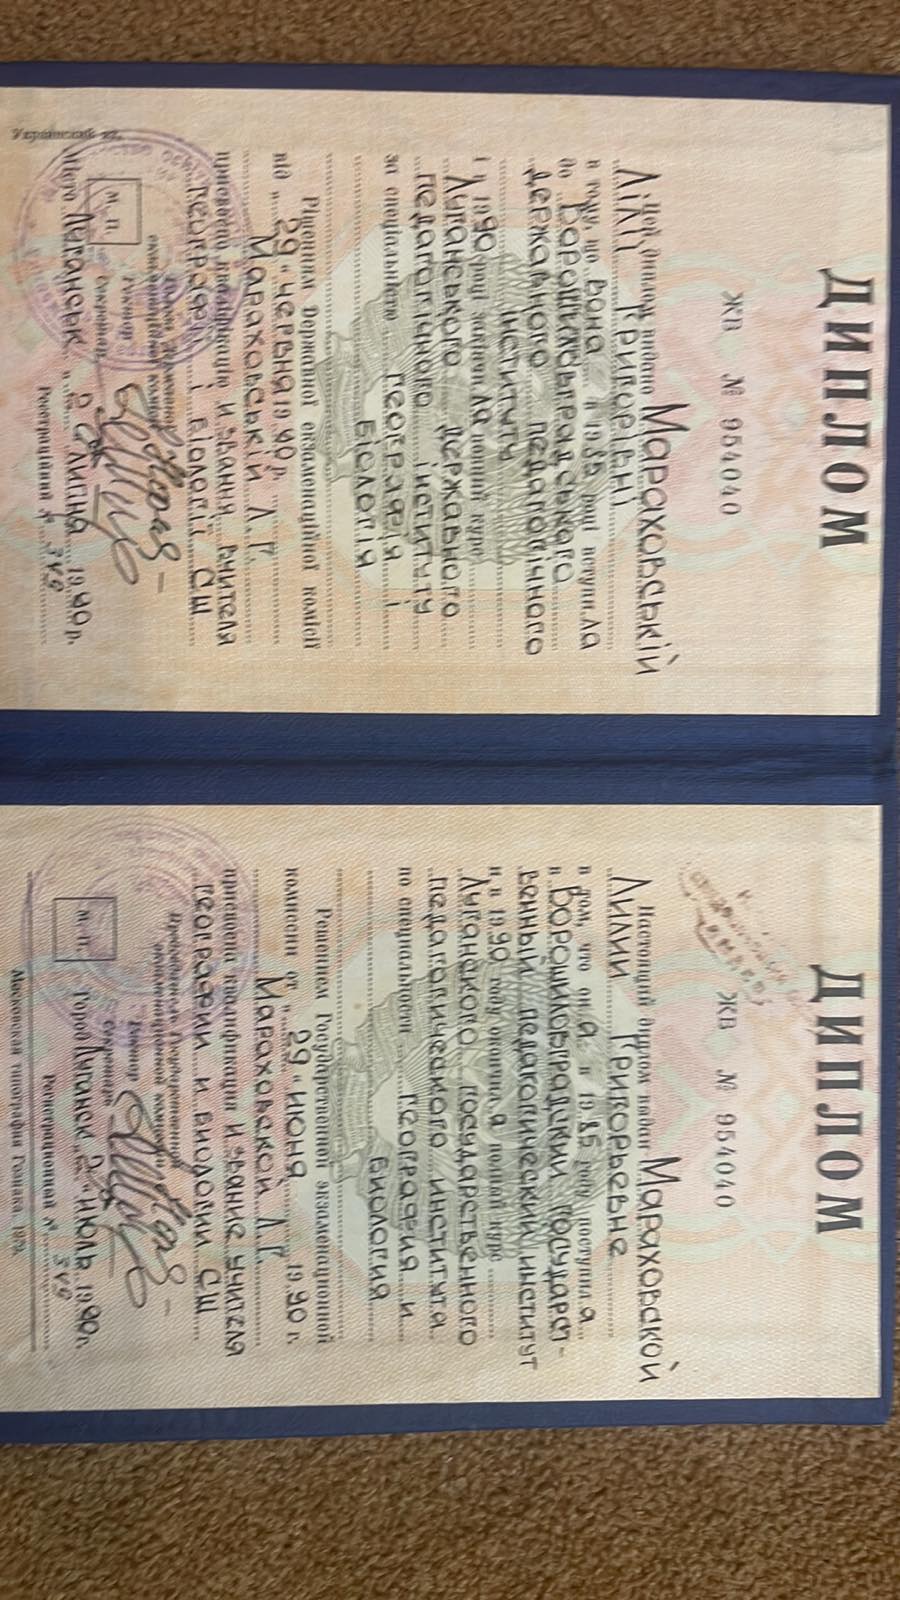 ДИПЛОМ
ЖВ № 954040
Цей диплом видано Мараховській
Лілії Григорівні
в тому, що вона в 1985 році вступила
до Ворошиловградського
державного педагогічного
інституту
і у 1990 році закінчила повний курс
Луганського державного
педагогічного інституту
за спеціальністю географія і
біологія
Рішенням Державної екзаменаційної комісії
від „29“ червня 1990 р.
Мараховській Л.Г.
присвоєно кваліфікацію и звання вчителя
географії і біології СШ
Голова Державної
екзаменаційної комісії
Ректор
Секретар
М. П.
Місто Луганськ „2“ липня 1990 р.
Реєстраційний № 349
Украинский яз.
ДИПЛОМ
ЖВ № 954040
Настоящий диплом выдан Мараховской
Лилии Григорьевне
в том, что она в 1985 году поступила
в Ворошиловградский государст-
венный педагогический институт
и в 1990 году окончила полный курс
Луганского государственного
педагогического института
по специальности география и
биология
Решением Государственной экзаменационной
комиссии от „29“ июня 1990 г.
Мараховской Л.Г.
присвоена квалификация и звание учителя
географии и биологии СШ
Председатель Государственной
экзаменационной комиссии
Ректор
Секретарь
М. П.
Город Луганск 2 июль 1990 г.
Регистрационный № 349
Московская типография Гознака. 1973.